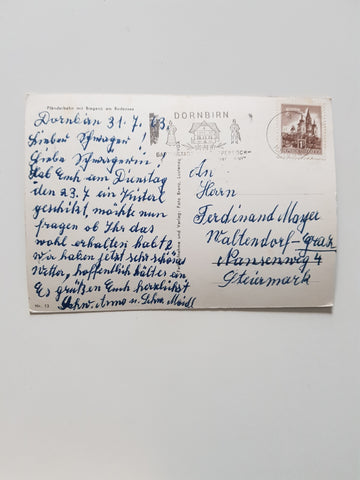 Pfänderbahn mit Bregenz am Bodensee
Dornbirn 31.7.63,
Lieber Schwager!
Liebe Schwägerin!
Hab Euch am Dienstag
den 23.7. ein
geschikt, möchte nun
fragen ob Ihr das
wohl erhalten habts
wir haben jetzt sehr schönes
Wetter, hoffentlich hälts an
Es grüßen Euch herzlichst
Schw. Anna u. Schw. Maidl
Nr. 13
DORNBIRN
An
Herrn
Ferdinand Mayer
Waltendorf-Graz
Nansenweg 4
Steiermark